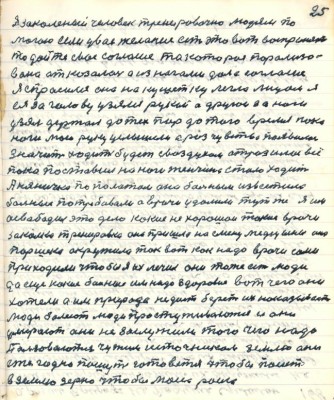 25
Я закаленый человек тренировочно людям по
могаю если у вас желание есть это вот восприняте
то дайте свое согласие та которая парализо-
вана отказалась а из ногами дала согласие
я спросился она на кушетку легла лицом я
ея за голову узяли рукой а другой за ноги
узял держал до тех пор до того время пока
ноги мою руку услышали через чувства появился
значит ходит будет с воздухом отразились всё
пока поставил на ноги женщина стала ходить
больные потребовали а врачи удалили тут те я им
это дело какие не хорошои такие врачи
закалка тренировка она пришла на смену медицины она
так вот как надо врачи сами
приходили чтобы я их лечил они тоже есть люди
да еще какие больные им надо здоровье вот чего они
хотели а их природа не дает будет их наказывать
люди болеют люди простуживаются и они
умирают они не заслужили того чего надо
пользоваются чужим источником землю они
ежегодно пашут готовятся чтобы посеять
в землю зерно чтобы могло расти